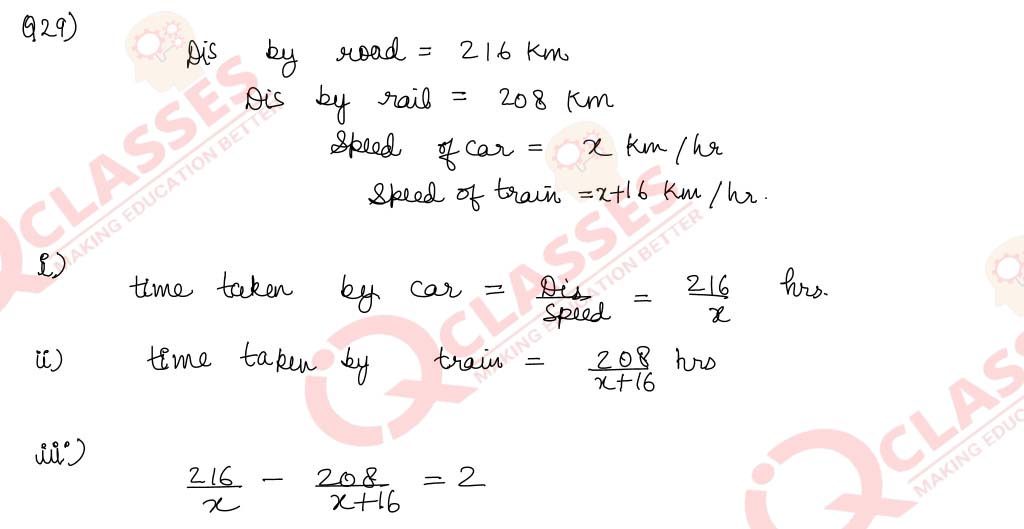 Q29)
Dis by road = 216 Km
Dis by rail = 208 Km
Speed of car = x Km/hr
Speed of train = x+16 Km/hr.
i) time taken by car = Dis/Speed = 216/x hrs.
ii) time taken by train = 208/x+16 hrs
iii) 216/x - 208/x+16 = 2
IQ CLASSES
MAKING EDUCATION BETTER
IQ CLASSES
MAKING EDUCATION BETTER
IQ CLASSES
MAKING EDUC